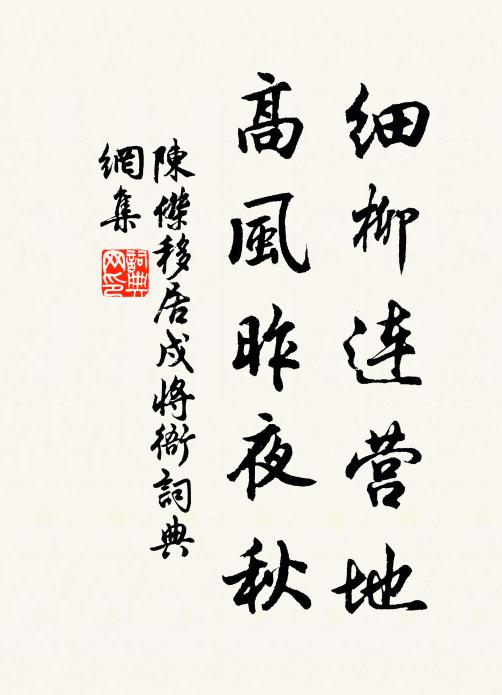 细柳连营地
高風昨夜秋
陳傑移居戍將衙詞典
網集
詞典
网印